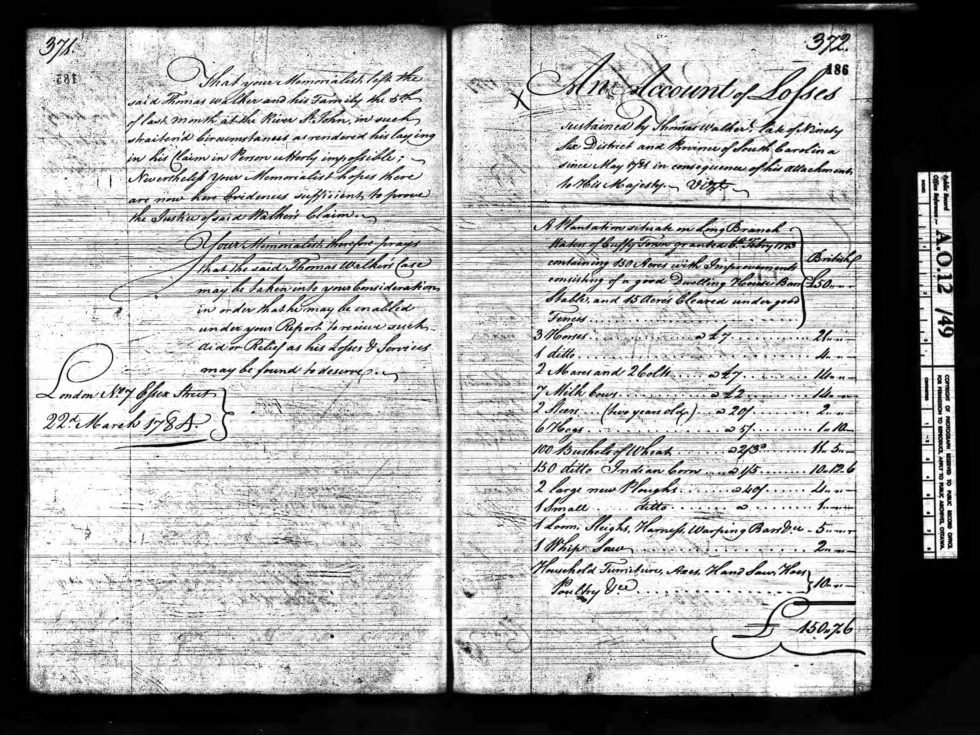 371.
185
That your Memorialist left the
said Thomas Walker and his Family the 5th
of last month at the River St. John, in such
straitend Circumstances as rendered his laying
in his Claim in Person utterly impossible;
Nevertheless Your Memorialist hopes there
are now here Evidences sufficient to prove
the Justice of said Walker's Claim.
Your Memorialist therefore prays
that the said Thomas Walker's Case
may be taken into your Consideration
in order that he may be enabled
under your Report to receive such
Aid or Relief as his Losses & Services
may be found to deserve.
London No. 7 Essex Street
22d. March 1784.
372.
186
X An Account of Losses
sustained by Thomas Walker late of Ninety
Six District and Province of South Carolina
since May 1781 in consequence of his attachment
to His Majesty. Vizt.
A Plantation situate on Long Branch
Waters of Cuffy Town granted 6th Febry 1773
containing 150 Acres with Improvements British
consisting of a good Dwelling House Barn £50 „ „
Stable, and 15 Acres Cleared under good
Fences
3 Horses a £7 21 „ „
1 ditto 4 „ „
2 Mares and 2 Colts a £7 14 „ „
7 Milk Cows a £2 14 „ „
2 Steers (two years old) a 20/ 2 „ „
6 Hogs a 5/ 1 „ 10 „
100 Bushels of Wheat a 2/3d 11 „ 5 „
150 ditto Indian Corn a 1/5 10 „ 12 „ 6
2 large new Ploughs a 40/ 4 „ „
1 Small ditto a 1 „ „
1 Loom, Sleighs, Harness, Warping Bars &c 5 „ „
1 Whip Saw 2 „ „
Household Furniture, Axes, Hand Saw, Hoes
Poultry &ca 10 „ „
£ 150 „ 7 „ 6
Public Record
Office Reference:-
A.O.12 /49
COPYRIGHT OF PHOTOGRAPH RESERVED TO PUBLIC RECORD OFFICE.
FOR PERMISSION TO REPRODUCE, APPLY TO PUBLIC ARCHIVES, OTTAWA.